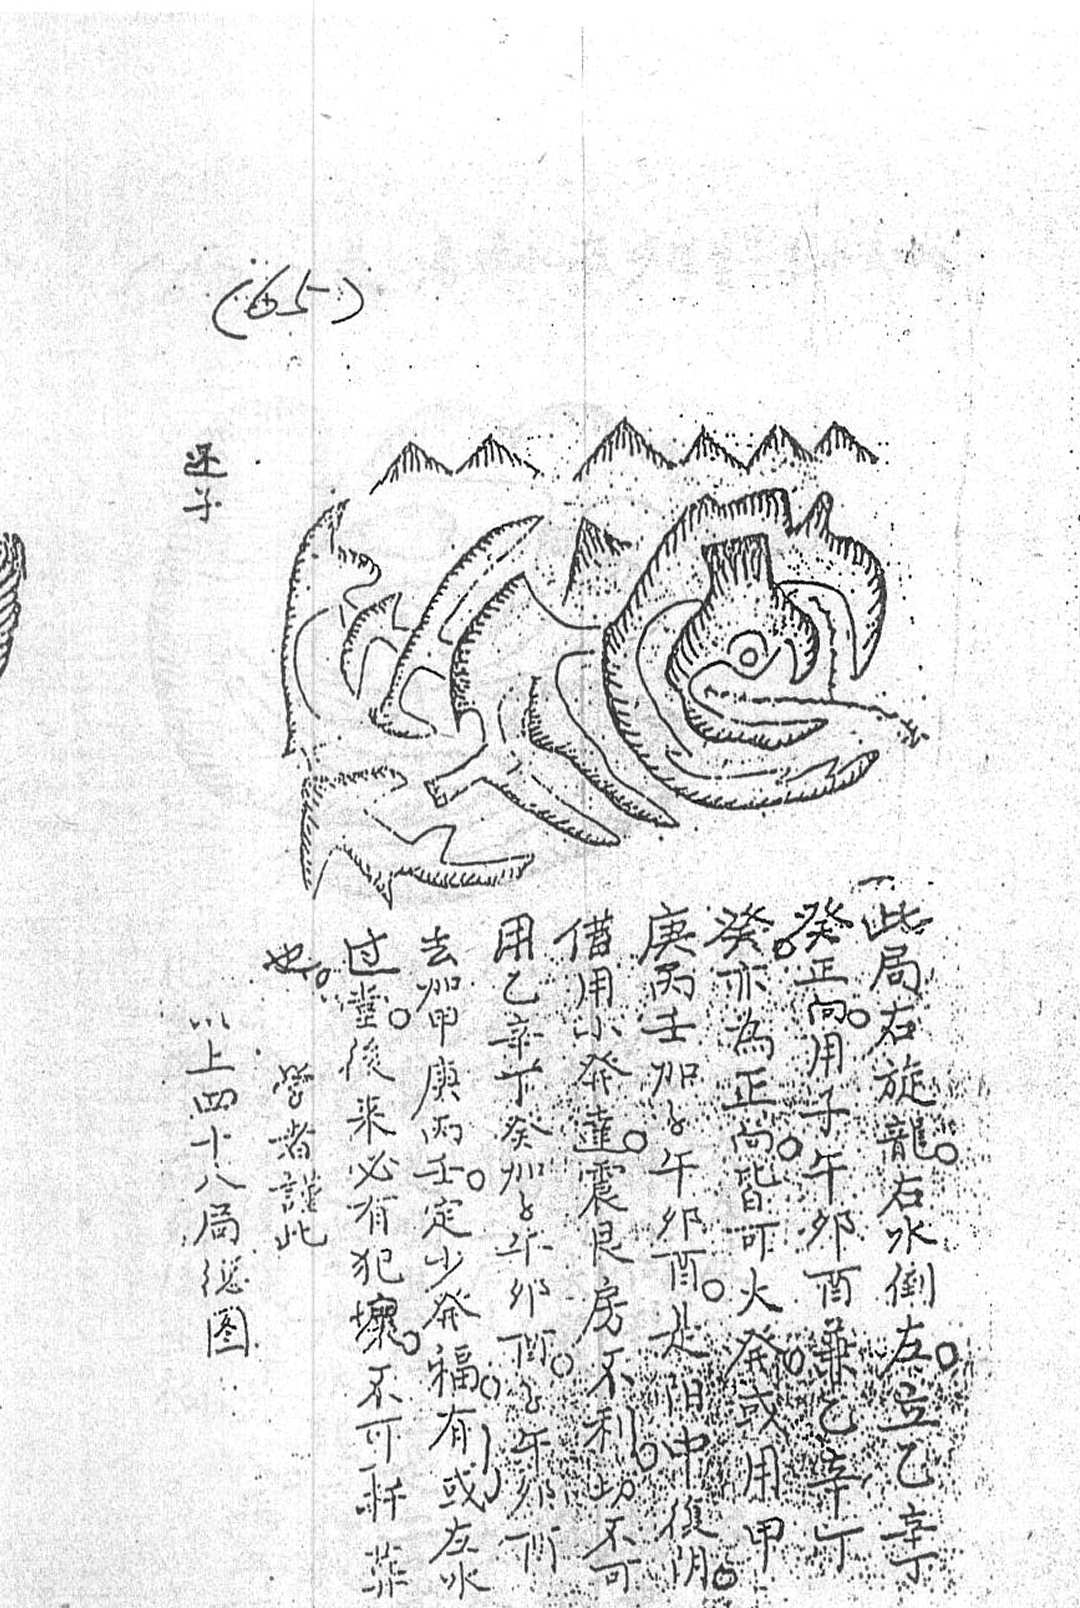 (65)
此局右旋龍。右水倒左。立乙辛丁
癸正向。用子午卯酉兼乙辛丁
癸。亦為正向。皆可大発。或用甲
庚丙壬加子午卯酉。是阳中復阴。
借用小発達。震艮房不利。切不可
用乙辛丁癸加子午卯酉。子午卯酉
去加甲庚丙壬。定少発福。有或左水
过堂。後来必有犯壞。不可扦葬
也。
学者謹此
以上四十八局総图